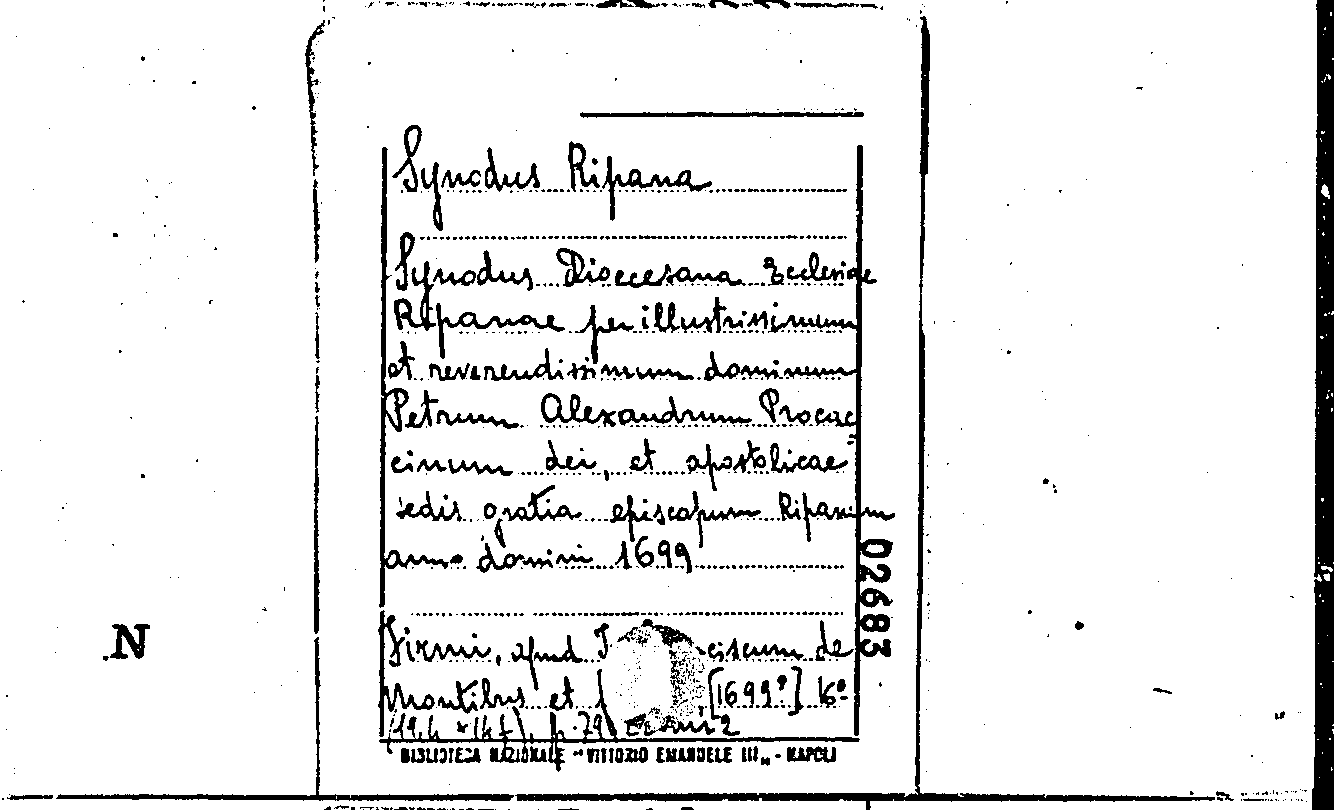 Synodus Ripana
Synodus Dioecesana Ecclesiae
Ripanae per illustrissimum
et reverendissimum dominum
Petrum Alexandrum Procac=
cinum dei, et apostolicae
sedis gratia episcopum Ripanum
anno domini 1699
02683
Firmi, apud
de
Montibus et
[1699?] 16º
N
BIBLIOTECA NAZIONALE "VITTORIO EMANUELE III„ - NAPOLI